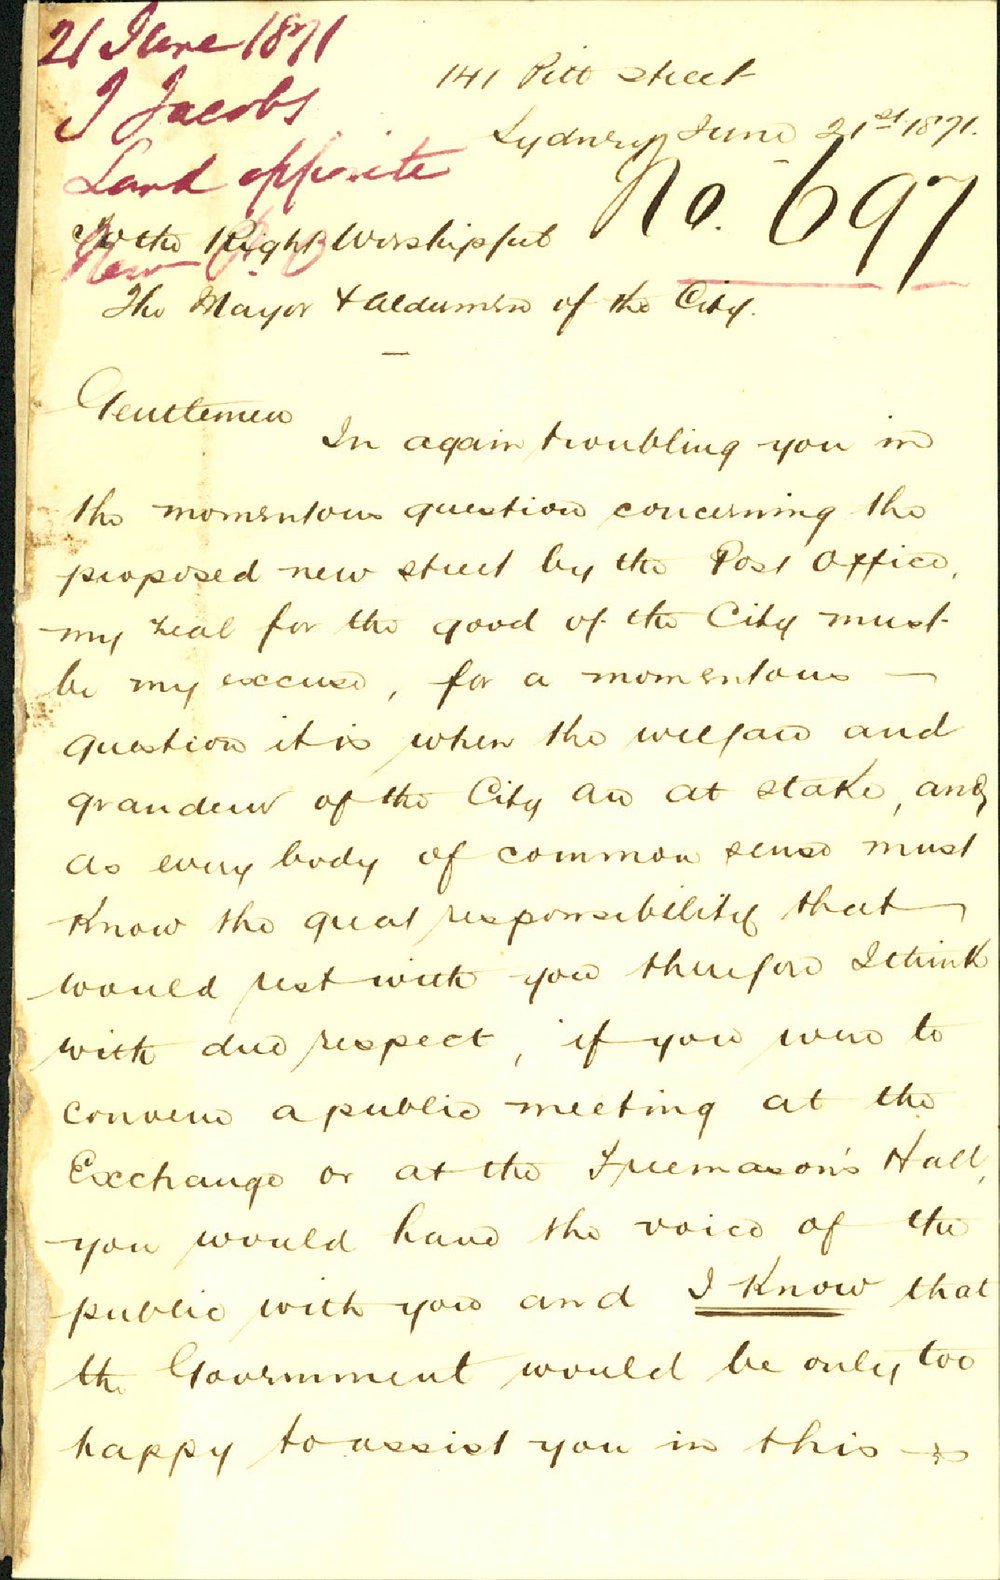 21 June 1871
J Jacobs
Land opposite
New P. O
141 Pitt Street
Sydney June 21st 1871.
No. 697
To the Right Worshipful
The Mayor & Aldermen of the City.
Gentlemen
In again troubling you in
the momentous question concerning the
proposed new street by the Post Office,
my zeal for the good of the City must
be my excuse, for a momentous
question it is when the welfare and
grandeur of the City are at stake, and
as every body of common sense must
know the great responsibility that
would rest with you therefore I think
with due respect, if you were to
convene a public meeting at the
Exchange or at the Freemason's Hall,
you would have the voice of the
public with you and I know that
the Government would be only too
happy to assist you in this